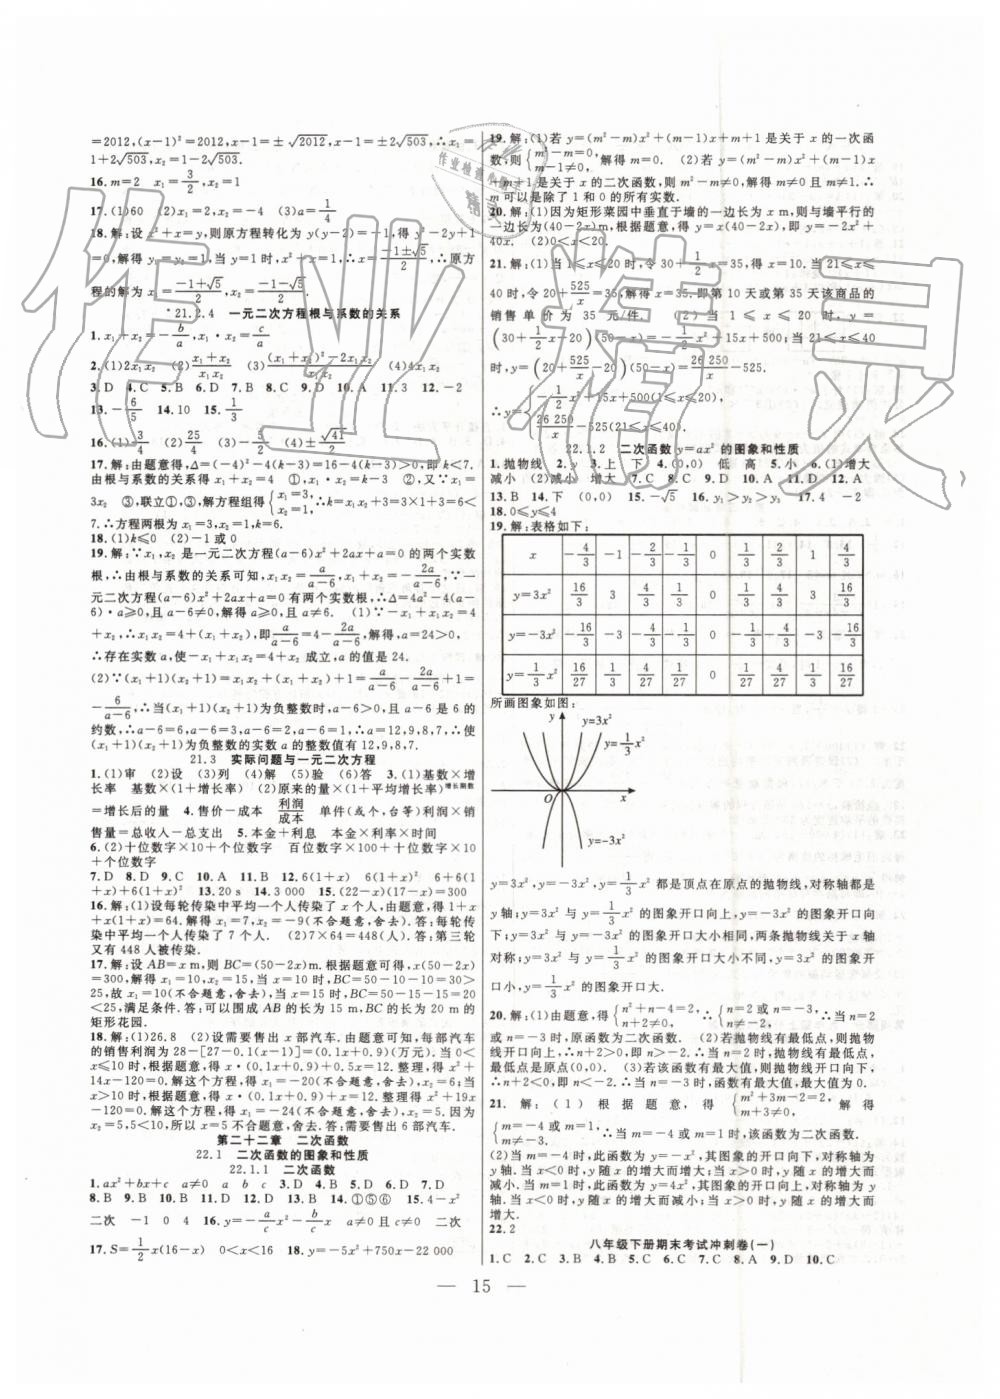 =2012,(x-1)²=2012,x-1=±√2012,x-1=±2√503,∴x₁=
1+2√503,x₂=1-2√503.
16.m=2 x₁=3/2,x₂=1
17.(1)60 (2)x₁=2,x₂=-4 (3)a=1/4
18.解:设x²+x=y,则原方程转化为y(y-2)=-1,得y²-2y+1
=0,解得y₁=y₂=1,当y=1时,x²+x=1,∴x=(-1±√5)/2,∴原方
程的解为x₁=(-1+√5)/2,x₂=(-1-√5)/2.
*21.2.4 一元二次方程根与系数的关系
1.x₁+x₂=-b/a,x₁x₂=c/a
2.(1)2x₁x₂ (2)(x₁+x₂)/(x₁x₂) (3)((x₁+x₂)²-2x₁x₂)/(x₁x₂) (4)4x₁x₂
3.D 4.C 5.B 6.D 7.B 8.C 9.D 10.A 11.3 12.-2
13.-6/5 14.10 15.1/3
16.(1)3/4 (2)25/4 (3)-5/2 (4)±√41/2
17.解:由题意得,Δ=(-4)²-4(k-3)=16-4(k-3)>0,即k<7.
由根与系数的关系得x₁+x₂=4 ①,x₁·x₂=k-3 ②,又∵x₁=
3x₂ ③,联立①,③,解方程组得{x₁=3, x₂=1,∴k=x₁x₂+3=3×1+3=6<
7.∴方程两根为x₁=3,x₂=1,k=6.
18.(1)k≤0 (2)-1或0
19.解:∵x₁,x₂是一元二次方程(a-6)x²+2ax+a=0的两个实数
根,∴由根与系数的关系可知,x₁x₂=a/(a-6),x₁+x₂=-2a/(a-6),∵一
元二次方程(a-6)x²+2ax+a=0有两个实数根,∴Δ=4a²-4(a-
6)·a≥0,且a-6≠0,解得a≥0,且a≠6. (1)∵-x₁+x₁x₂=4
+x₂,∴x₁x₂=4+(x₁+x₂),即a/(a-6)=4-2a/(a-6),解得,a=24>0,
∴存在实数a,使-x₁+x₁x₂=4+x₂成立,a的值是24.
(2)∵(x₁+1)(x₂+1)=x₁x₂+(x₁+x₂)+1=a/(a-6)-2a/(a-6)+1=
-6/(a-6),∴当(x₁+1)(x₂+1)为负整数时,a-6>0,且a-6是6的
约数,∴a-6=6,a-6=3,a-6=2,a-6=1,∴a=12,9,8,7,∴使
(x₁+1)(x₂+1)为负整数的实数a的整数值有12,9,8,7.
21.3 实际问题与一元二次方程
1.(1)审 (2)设 (3)列 (4)解 (5)验 (6)答 3.(1)基数×增
长率 基数×(1+增长率) (2)原来的量×(1+平均增长率)^增长期数
=增长后的量 4.售价-成本 利润/成本 单件(或个,台等)利润×销
售量=总收入-总支出 5.本金+利息 本金×利率×时间
6.(2)十位数字×10+个位数字 百位数字×100+十位数字×10
+个位数字
7.D 8.D 9.C 10.A 11.B 12.6(1+x) 6(1+x)² 6+6(1
+x)+6(1+x)² 13.20 s 14.3 000 15.(22-x)(17-x)=300
16.解:(1)设每轮传染中平均一个人传染了x个人,由题意,得1+x
+x(1+x)=64.解得x₁=7,x₂=-9(不合题意,舍去).答:每轮传
染中平均一个人传染了7个人. (2)7×64=448(人).答:第三轮
又有448人被传染.
17.解:设AB=x m,则BC=(50-2x)m.根据题意可得,x(50-2x)
=300,解得x₁=10,x₂=15,当x=10时,BC=50-10-10=30>
25,故x₁=10(不合题意,舍去),当x=15时,BC=50-15-15=20
<25,满足条件.答:可以围成AB的长为15 m,BC的长为20 m的
矩形花园.
18.解:(1)26.8 (2)设需要售出x部汽车,由题意可知,每部汽车
的销售利润为28-[27-0.1(x-1)]=(0.1x+0.9)(万元).当0<
x≤10时,根据题意,得x·(0.1x+0.9)+0.5x=12.整理,得x²+
14x-120=0.解这个方程,得x₁=-20(不合题意,舍去),x₂=6;当
x>10时,根据题意,得x·(0.1x+0.9)+x=12.整理,得x²+19x
-120=0.解这个方程,得x₁=-24(不合题意,舍去),x₂=5.因为
x₂=5,5<10,所以x=5不合题意,舍去.答:需要售出6部汽车.
第二十二章 二次函数
22.1 二次函数的图象和性质
22.1.1 二次函数
1.ax²+bx+c a≠0 a b c 3.C 4.D 5.D 6.D 7.D
8.B 9.B 10.D 11.B 12.B 13.B 14.①⑤⑥ 15.4-x²
二次 -1 0 4 16.y=-(a/c)x²-(b/c)x a≠0且c≠0 二次
17.S=1/2x(16-x) 0<x<16 18.y=-5x²+750x-22 000
19.解:(1)若y=(m²-m)x²+(m-1)x+m+1是关于x的一次函
数,则{m²-m=0, m-1≠0,解得m=0. (2)若y=(m²-m)x²+(m-1)x
+m+1是关于x的二次函数,则m²-m≠0,解得m≠0且m≠1.∴
m可以是除了1和0的所有实数.
20.解:(1)因为矩形菜园中垂直于墙的一边长为x m,则与墙平行的
一边长为(40-2x)m,根据题意,得y=x(40-2x),即y=-2x²+
40x. (2)0<x<20.
21.解:(1)当1≤x≤20时,令30+1/2x=35,得x=10.当21≤x≤
40时,令20+525/x=35,解得x=35.即第10天或第35天该商品的
销售单价为35元/件. (2)当1≤x≤20时,y=
(30+1/2x-20)(50-x)=-1/2x²+15x+500;当21≤x≤40
时,y=(20+525/x-20)(50-x)=26 250/x-525.
∴y={-1/2x²+15x+500(1≤x≤20), 26 250/x-525(21≤x≤40).
22.1.2 二次函数y=ax²的图象和性质
1.抛物线 2.y 3.上 下 4.(0,0) 低 高 5.小 6.(1)增大
减小 (2)减小 增大 7.C 8.C 9.D 10.A 11.D 12.A
13.B 14.下 (0,0) 15.-√5 16.y₁>y₂>y₃ 17.4 -2
18.0≤y≤4
19.解:表格如下:
x -4/3 -1 -2/3 -1/3 0 1/3 2/3 1 4/3
y=3x² 16/3 3 4/3 1/3 0 1/3 4/3 3 16/3
y=-3x² -16/3 -3 -4/3 -1/3 0 -1/3 -4/3 -3 -16/3
y=1/3x² 16/27 1/3 4/27 1/27 0 1/27 4/27 1/3 16/27
所画图象如图:
y y=3x²
y=1/3x²
O x
y=-3x²
y=3x²,y=-3x²,y=1/3x²都是顶点在原点的抛物线,对称轴都是
y轴;y=3x²与y=1/3x²的图象开口向上,y=-3x²的图象开口向
下;y=3x²与y=-3x²的图象开口大小相同,两条抛物线关于x轴
对称;y=3x²与y=1/3x²的图象开口大小不同,y=3x²的图象开
口小,y=1/3x²的图象开口大.
20.解:(1)由题意,得{n²+n-4=2, n+2≠0, ∴{n=2或n=-3, n≠-2, ∴当n=2或n=
-3时,原函数为二次函数. (2)若抛物线有最低点,则抛物
线开口向上,∴n+2>0,即n>-2.∴当n=2时,抛物线有最低点,
最低点是原点(0,0). (3)若函数有最大值,则抛物线开口向下,
∴n+2<0,即n<-2.∴当n=-3时,函数有最大值,最大值为0.
21.解:(1)根据题意,得{m²+3m-2=2, m+3≠0, 解得
{m=-4或m=1, m≠-3, ∴当m=-4或m=1时,该函数为二次函数.
(2)当m=-4时,该函数为y=-x²,其图象开口向下,对称轴为y
轴.当x<0时,y随x的增大而增大;当x>0时,y随x的增大而
减小.当m=1时,该函数为y=4x²,其图象开口向上,对称轴为y
轴.当x<0时,y随x的增大而减小;当x>0时,y随x的增大而
增大.
22.2
八年级下册期末考试冲刺卷(一)
1.C 2.C 3.B 4.B 5.C 6.C 7.C 8.A 9.D 10.C
— 15 —
作业精灵